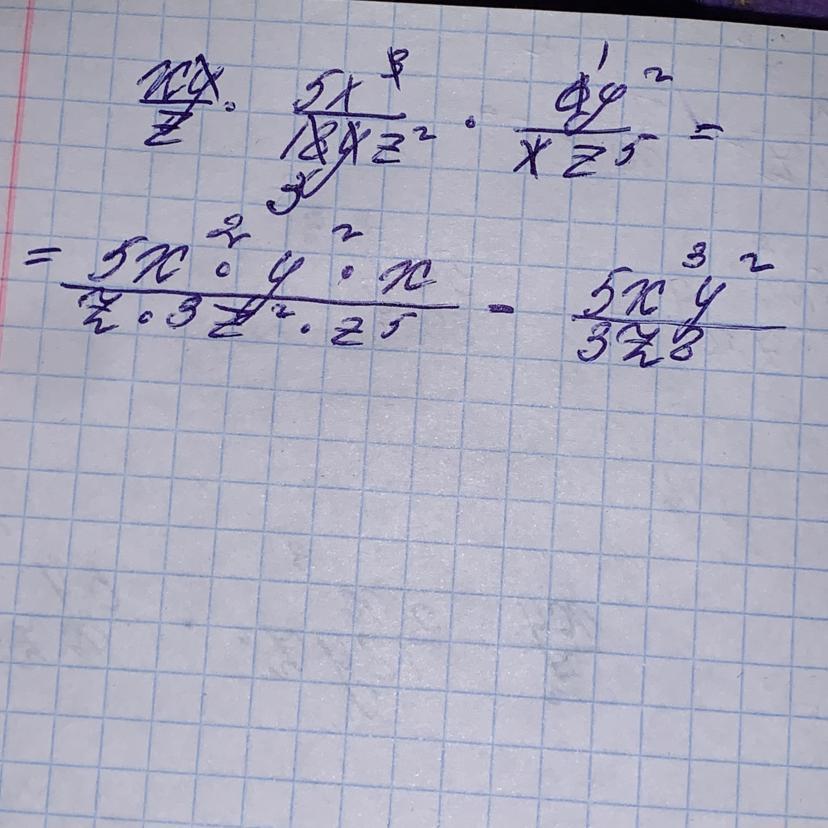 xy/z · 5x³/18yz² · 4y²/xz⁵ =
3 1
= 5x² · y² · x / z · 3z² · z⁵ - 5x³y² / 3z8